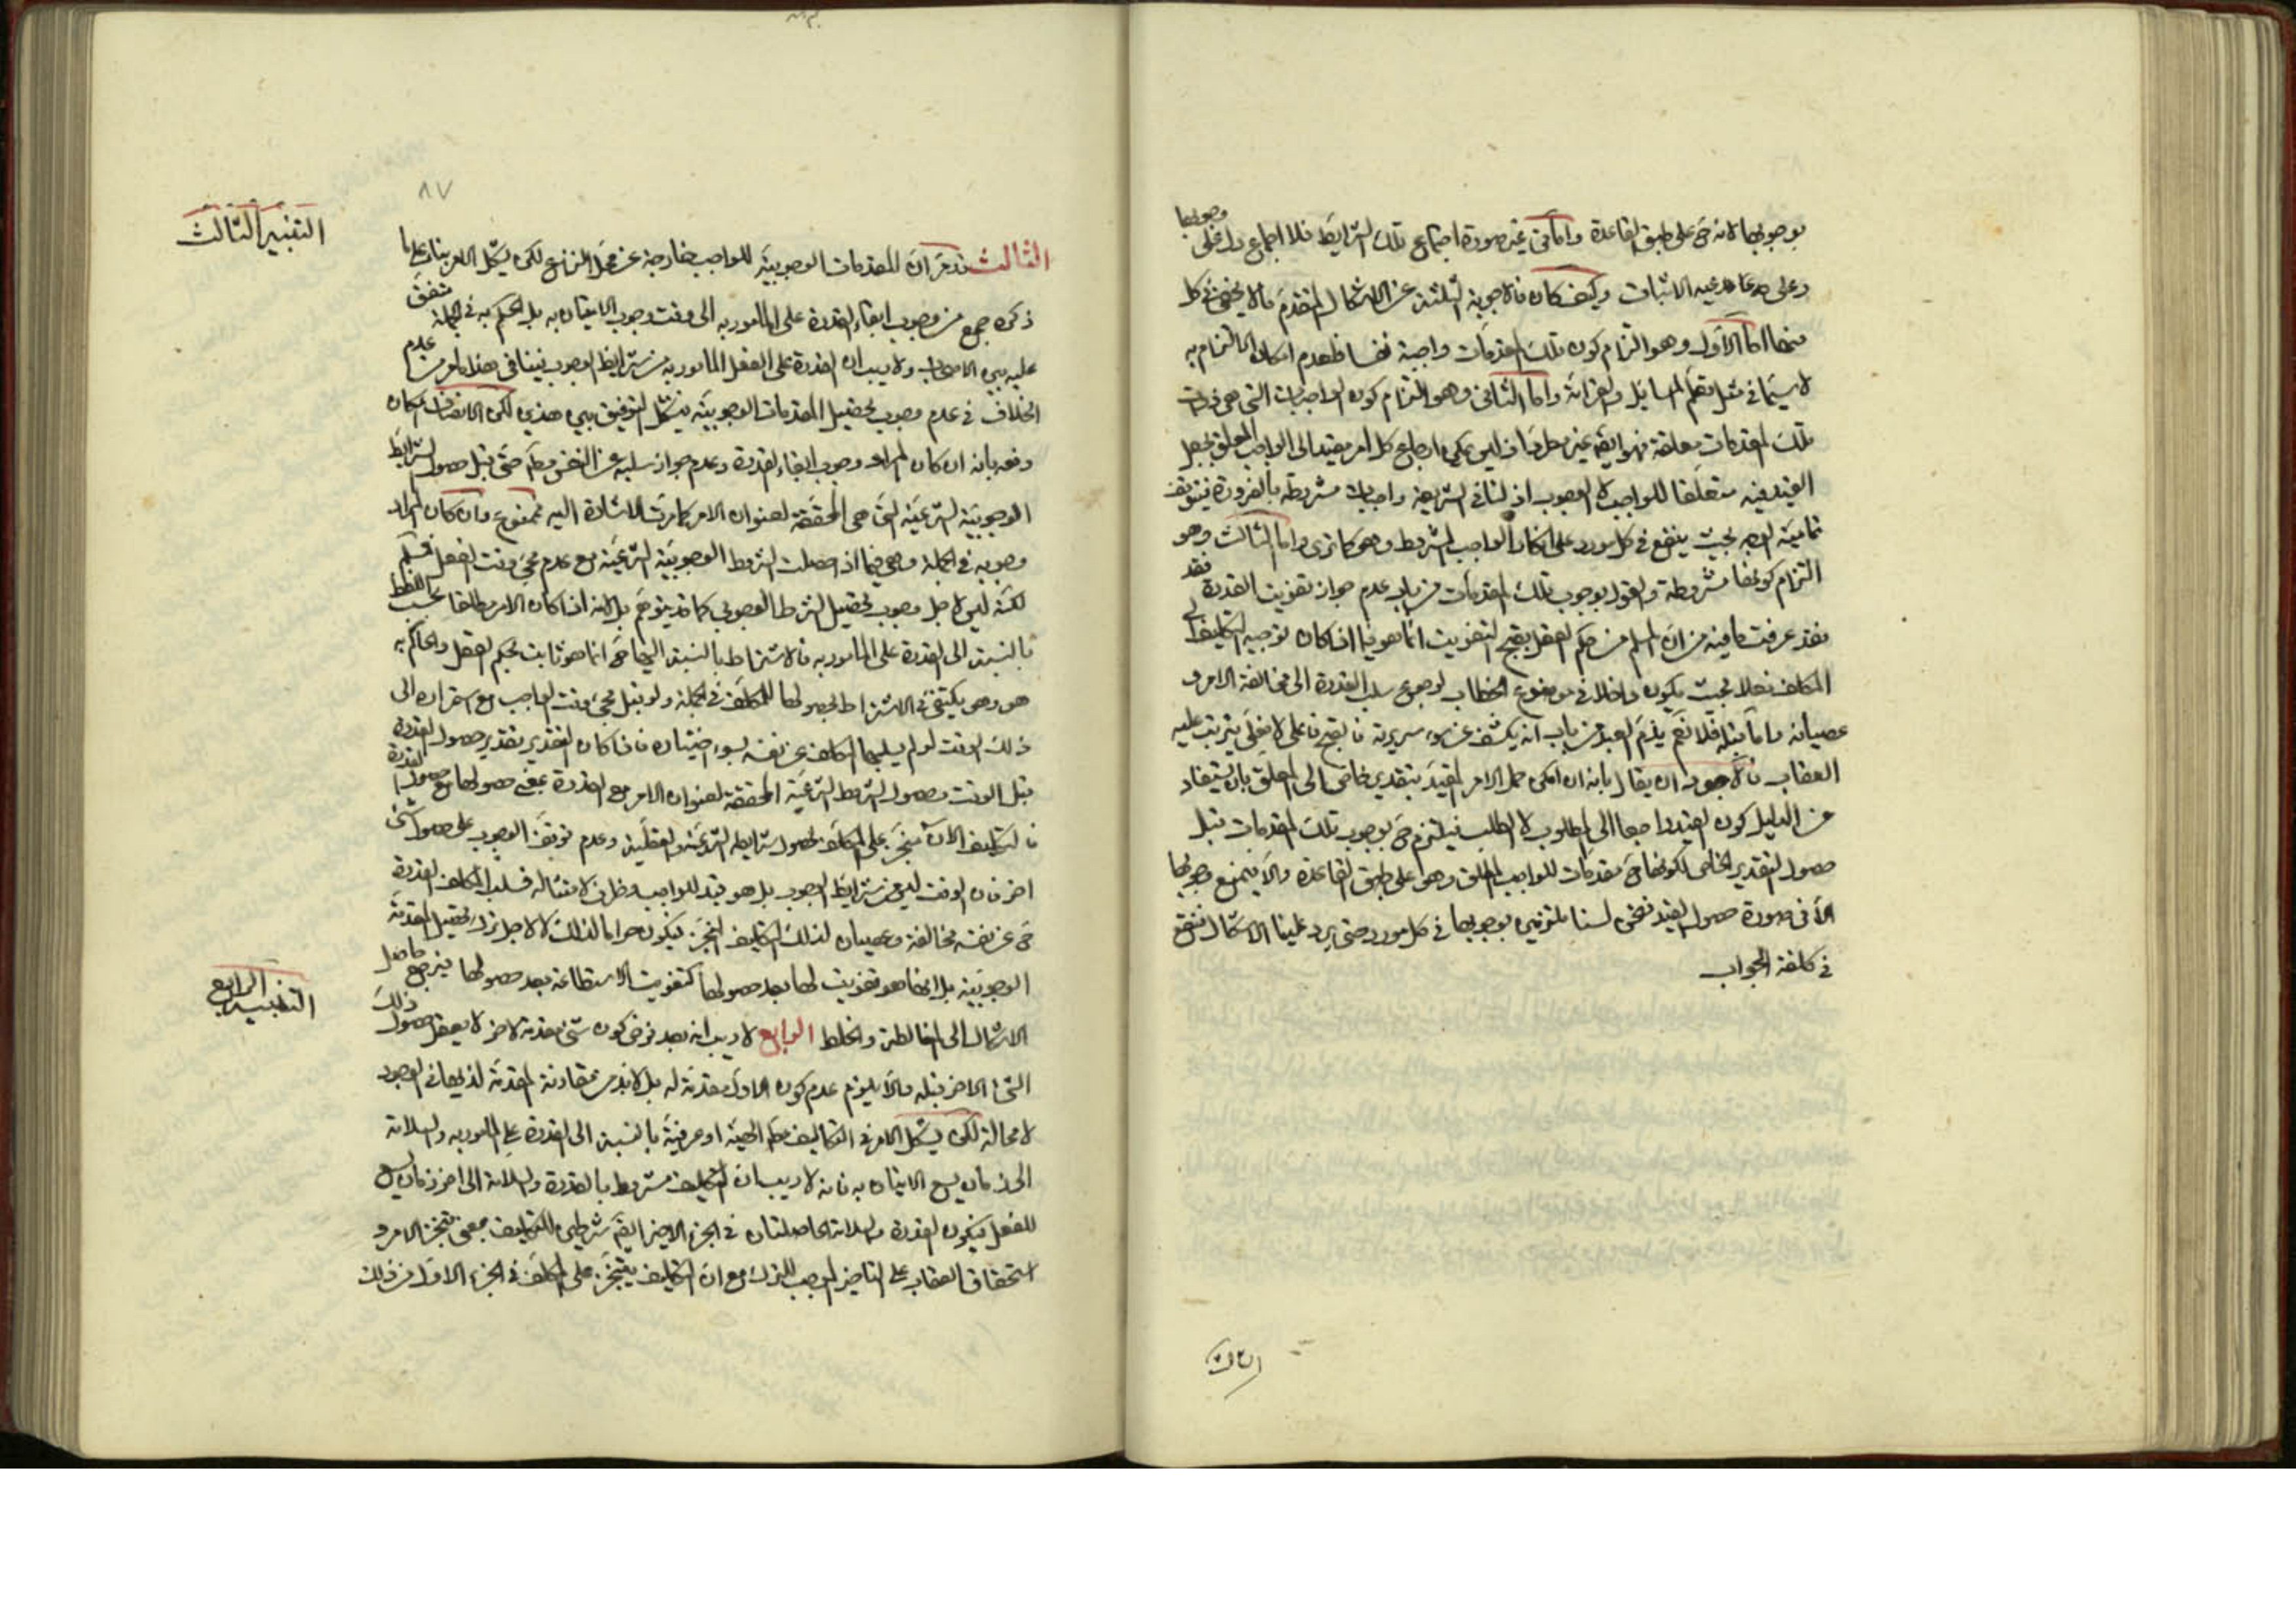 بوجوبها لانه ح على طبق القاعدة واما في غير صورة اجتماع تلك الشرايط فلا اجماع داخلى وجوبها
وعلى مدعيه الاثبات وكيف كان فالاجوبة الثلثة عن الاشكال المتقدم مما لا يخفى في كل
منها اما الاول وهو التزام كون تلك المقدمات واجبة نفسا فلعدم امكان الالتزام به
لا سيما في مثل تعلم المسايل والقرائة واما الثانى وهو التزام كون الواجبات التى هى ذوات
تلك المقدمات معلقة فهو ايضا غير ليس يمكن ارجاع كل امر مقيد الى الواجب المعلق بجعل
القيد فيه متعلقا للواجب لا الوجوب اذ لنا في الشريعة واجبات مشروطة بالضرورة فيتوقف
تمامية الوجه بحيث ينفع في كل مورد على انكار الواجب المشروط وهى كما ترى واما الثالث وهو
التزام كونها مشروطة والقول بوجوب تلك المقدمات من باب عدم جواز تفويت القدرة فقد
فقد عرفت ما فيه من ان المسلم من حكم العقل بقبح التفويت انما هو فيما اذا كان توجيه التكليف الى
المكلف فعلا بحيث يكون داخلا في موضوع الخطاب لرجوع سلب القدرة الى مخالفة الامر و
عصيانه واما قبله فلا نعم يذم العبد من باب انه يكشف عن سوء سريرته فالقبح فاعلى لا فعلى يترتب عليه
العقاب فالاجود ان يقال بانه ان امكن حمل الامر المقيد بتقدير خاص الى المعلق بان يستفاد
من الدليل كون القيد راجعا الى المطلوب لا الطلب فيلتزم ح بوجوب تلك المقدمات قبل
حصول التقدير الخاص لكونها ح مقدمات للواجب المطلق وهو على طبق القاعدة والا فيمنع وجوبها
الا في صورة حصول القيد فنحن لسنا ملتزمين بوجوبها في كل مورد حتى يرد علينا الاشكال فنقع
في كلفة الجواب
الثالث
٨٧
التنبيه الثالث
الثالث قد مر ان المقدمات الوجوبية للواجب خارجة عن محل النزاع لكن يشكل الامر بناء على ما
ذكره جمع من وجوب ابقاء القدرة على المأمور به الى وقت وجوب الاتيان به بل الحكم به في الجملة متفق
عليه بين الاصحاب ولا ريب ان القدرة على الفعل المأمور به من شرايط الوجوب فينافى هذا مامر من عدم
الخلاف في عدم وجوب تحصيل المقدمات الوجوبية فيشكل التوفيق بين هذين لكن الانصاف امكان
دفعه بانه ان كان المراد وجوب ابقاء القدرة وعدم جواز سلبه عن النفس مطلقا حتى قبل حصول الشرايط
الوجوبية الشرعية التى هى المحققة لعنوان الامر كما مرت الاشارة اليه فممنوع وان كان المراد
وجوبه في الجملة وهى فيما اذا حصلت الشروط الوجوبية الشرعية مع عدم مجئ وقت الفعل فمسلم
لكنه ليس لاجل وجوب تحصيل الشرط الوجوبى كما قد يتوهم بل لانه اذا كان الامر مطلقا بحسب اللفظ
بالنسبة الى القدرة على المأمور به فالاشتراط بالنسبة اليها ح انما هو ثابت بحكم العقل والحاكم به
هو وهو يكتفى في الاشتراط بحصولها للمكلف في الجملة ولو قبل مجئ وقت الواجب مع استمراره الى
ذلك الوقت لو لم يسلبها المكلف عن نفسه بسوء اختياره فاذا كان التقدير تقدير حصول القدرة
قبل الوقت وحصول الشروط الشرعية المحققة لعنوان الامر مع القدرة بمعنى حصولها مع حصول القدرة
فالتكليف الان منجز على المكلف بحصول شرايطه الشرعية والعقلية وعدم توقف الوجوب على حصول شئ
اخر فان الوقت ليس من شرايط الوجوب بل هو قيد للواجب وظرف لامتثاله فسلب المكلف القدرة
ح عن نفسه مخالفة وعصيان لذلك التكليف المنجز فيكون حراما لذلك لا لاجل ترك تحصيل المقدمة
الوجوبية بل انما هو تفويت لها بعد حصولها كتفويت الاستطاعة بعد حصولها فيرجع حاصل
التنبيه الرابع
الاشكال الى المغالطة والخلط الرابع لا ريب انه بعد فرض كون شئ مقدمة لاخر لا يعقل حصول ذلك
الشئ الاخر قبله والا يلزم عدم كون الاول مقدمة له بل لا بد من مقارنة المقدمة لذيها في الوجود
لا محالة لكن يشكل الامر في التكاليف بالنسبة الى القدرة على المأمور به والسلامة
الى زمان يسع الاتيان به فانه لا ريب ان التكليف مشروط بالقدرة والسلامة الى اخر زمان يسع
للفعل فيكون القدرة والسلامة الحاصلتان في الجزء الاخير ايضا شرطين للتكليف بمعنى تنجز الامر و
استحقاق العقاب على التاخير الموجب للترك مع ان التكليف يتنجز على المكلف في الجزء الاول من ذلك